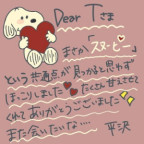 Dear Tさま
まさか「スヌーピー」
という共通点が見つかると思わず
ほっこりしました たくさん甘えさせて
くれてありがとうございました
また会いたいな〜
平沢